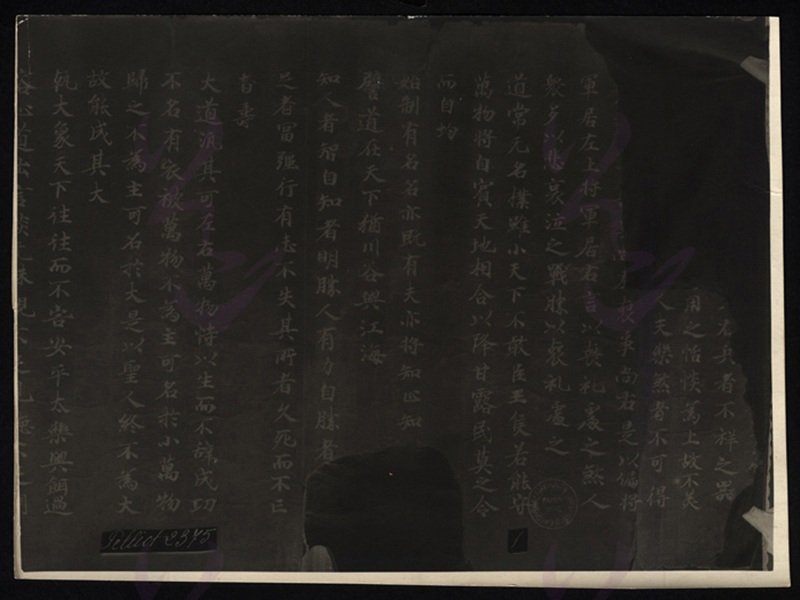 者不祥之器
用之恬惔為上故不美
人夫樂煞者不可得
事尚右是以偏將
軍居左上將軍居右言以喪礼處之煞人
衆多以悲哀泣之戰勝以喪礼處之
道常无名樸雖小天下不敢臣王侯若能守
萬物將自賓天地相合以降甘露民莫之令
而自均
始制有名名亦既有夫亦將知止知
譬道在天下猶川谷與江海
知人者智自知者明勝人有力自勝者
足者富強行有志不失其所者久死而不亡
者壽
大道汎其可左右萬物恃以生而不辭成功
不名有衣被萬物不為主可名於小萬物
歸之不為主可名於大是以聖人終不為大
故能成其大
執大象天下往往而不害安平太樂與餌過
Pelliot 2375
1